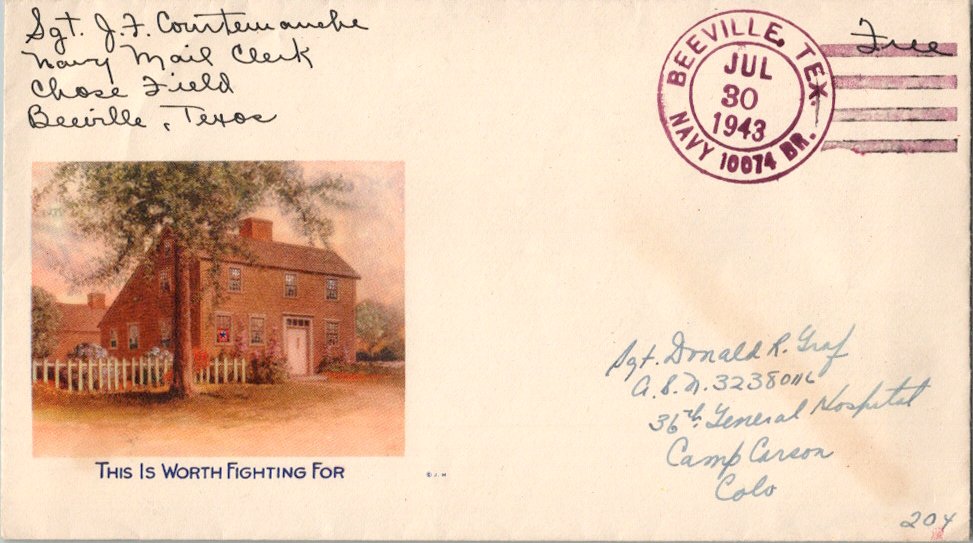 Sgt. J. F. Courtemanche
Navy Mail Clerk
Chase Field
Beeville, Texas
Free
BEEVILLE, TEX.
JUL
30
1943
NAVY 10074 BR.
Sgt. Donald R. Graf
A.S.N. 32380116
36th General Hospital
Camp Carson
Colo
204
THIS IS WORTH FIGHTING FOR
© J. H